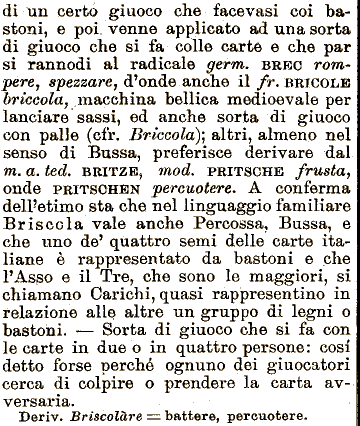 di un certo giuoco che facevasi coi ba-
stoni, e poi venne applicato ad una sorta
di giuoco che si fa colle carte e che par
si rannodi al radicale germ. BREC rom-
pere, spezzare, d'onde anche il fr. BRICOLE
briccola, macchina bellica medioevale per
lanciare sassi, ed anche sorta di giuoco
con palle (cfr. Briccola); altri, almeno nel
senso di Bussa, preferisce derivare dal
m. a. ted. BRITZE, mod. PRITSCHE frusta,
onde PRITSCHEN percuotere. A conferma
dell'etimo sta che nel linguaggio familiare
Briscola vale anche Percossa, Bussa, e
che uno de' quattro semi delle carte ita-
liane è rappresentato da bastoni e che
l'Asso e il Tre, che sono le maggiori, si
chiamano Carichi, quasi rappresentino in
relazione alle altre un gruppo di legni o
bastoni. — Sorta di giuoco che si fa con
le carte in due o in quattro persone: cosí
detto forse perché ognuno dei giuocatori
cerca di colpire o prendere la carta av-
versaria.
Deriv. Briscolàre = battere, percuotere.